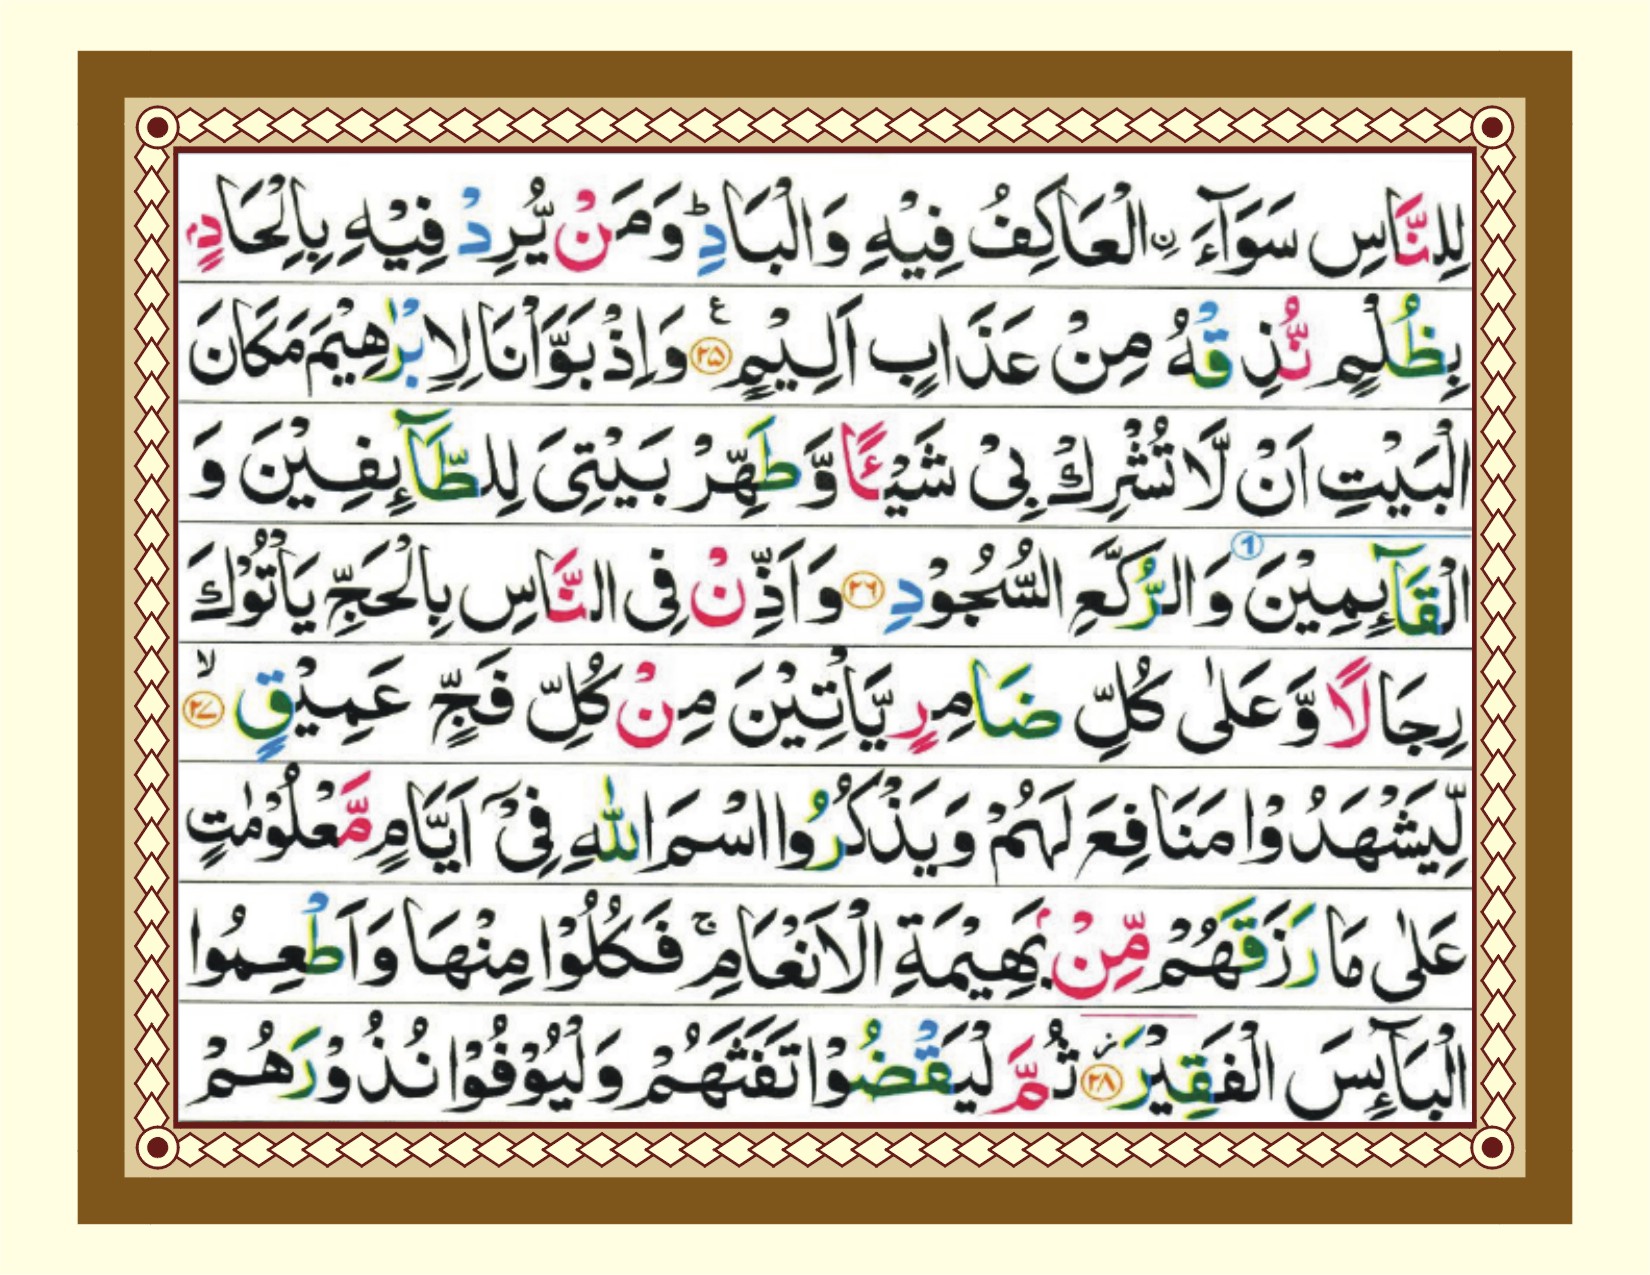 لِلنَّاسِ سَوَآءَ ۨالْعَاكِفُ فِيْهِ وَالْبَادِ ؕ وَمَنْ يُّرِدْ فِيْهِ بِاِلْحَادٍۭ
بِظُلْمٍ نُّذِقْهُ مِنْ عَذَابٍ اَلِيْمٍ ﴿۲۵﴾ ع وَاِذْ بَوَّاْنَا لِاِبْرٰهِيْمَ مَكَانَ
الْبَيْتِ اَنْ لَّا تُشْرِكْ بِىْ شَيْـًٔا وَّطَهِّرْ بَيْتِىَ لِلطَّآئِفِيْنَ وَ
الْقَآئِمِيْنَ ۱ وَالرُّكَّعِ السُّجُوْدِ ﴿۲۶﴾ وَاَذِّنْ فِى النَّاسِ بِالْحَجِّ يَاْتُوْكَ
رِجَالًا وَّعَلٰى كُلِّ ضَامِرٍ يَّاْتِيْنَ مِنْ كُلِّ فَجٍّ عَمِيْقٍ ﴿۲۷﴾ ۙ
لِّيَشْهَدُوْا مَنَافِعَ لَهُمْ وَيَذْكُرُوا اسْمَ اللّٰهِ فِىْۤ اَيَّامٍ مَّعْلُوْمٰتٍ
عَلٰى مَا رَزَقَهُمْ مِّنْۢ بَهِيْمَةِ الْاَنْعَامِ ۚ فَكُلُوْا مِنْهَا وَاَطْعِمُوا
الْبَآئِسَ الْفَقِيْرَ ﴿۲۸﴾ ز ثُمَّ لْيَقْضُوْا تَفَثَهُمْ وَلْيُوْفُوْا نُذُوْرَهُمْ